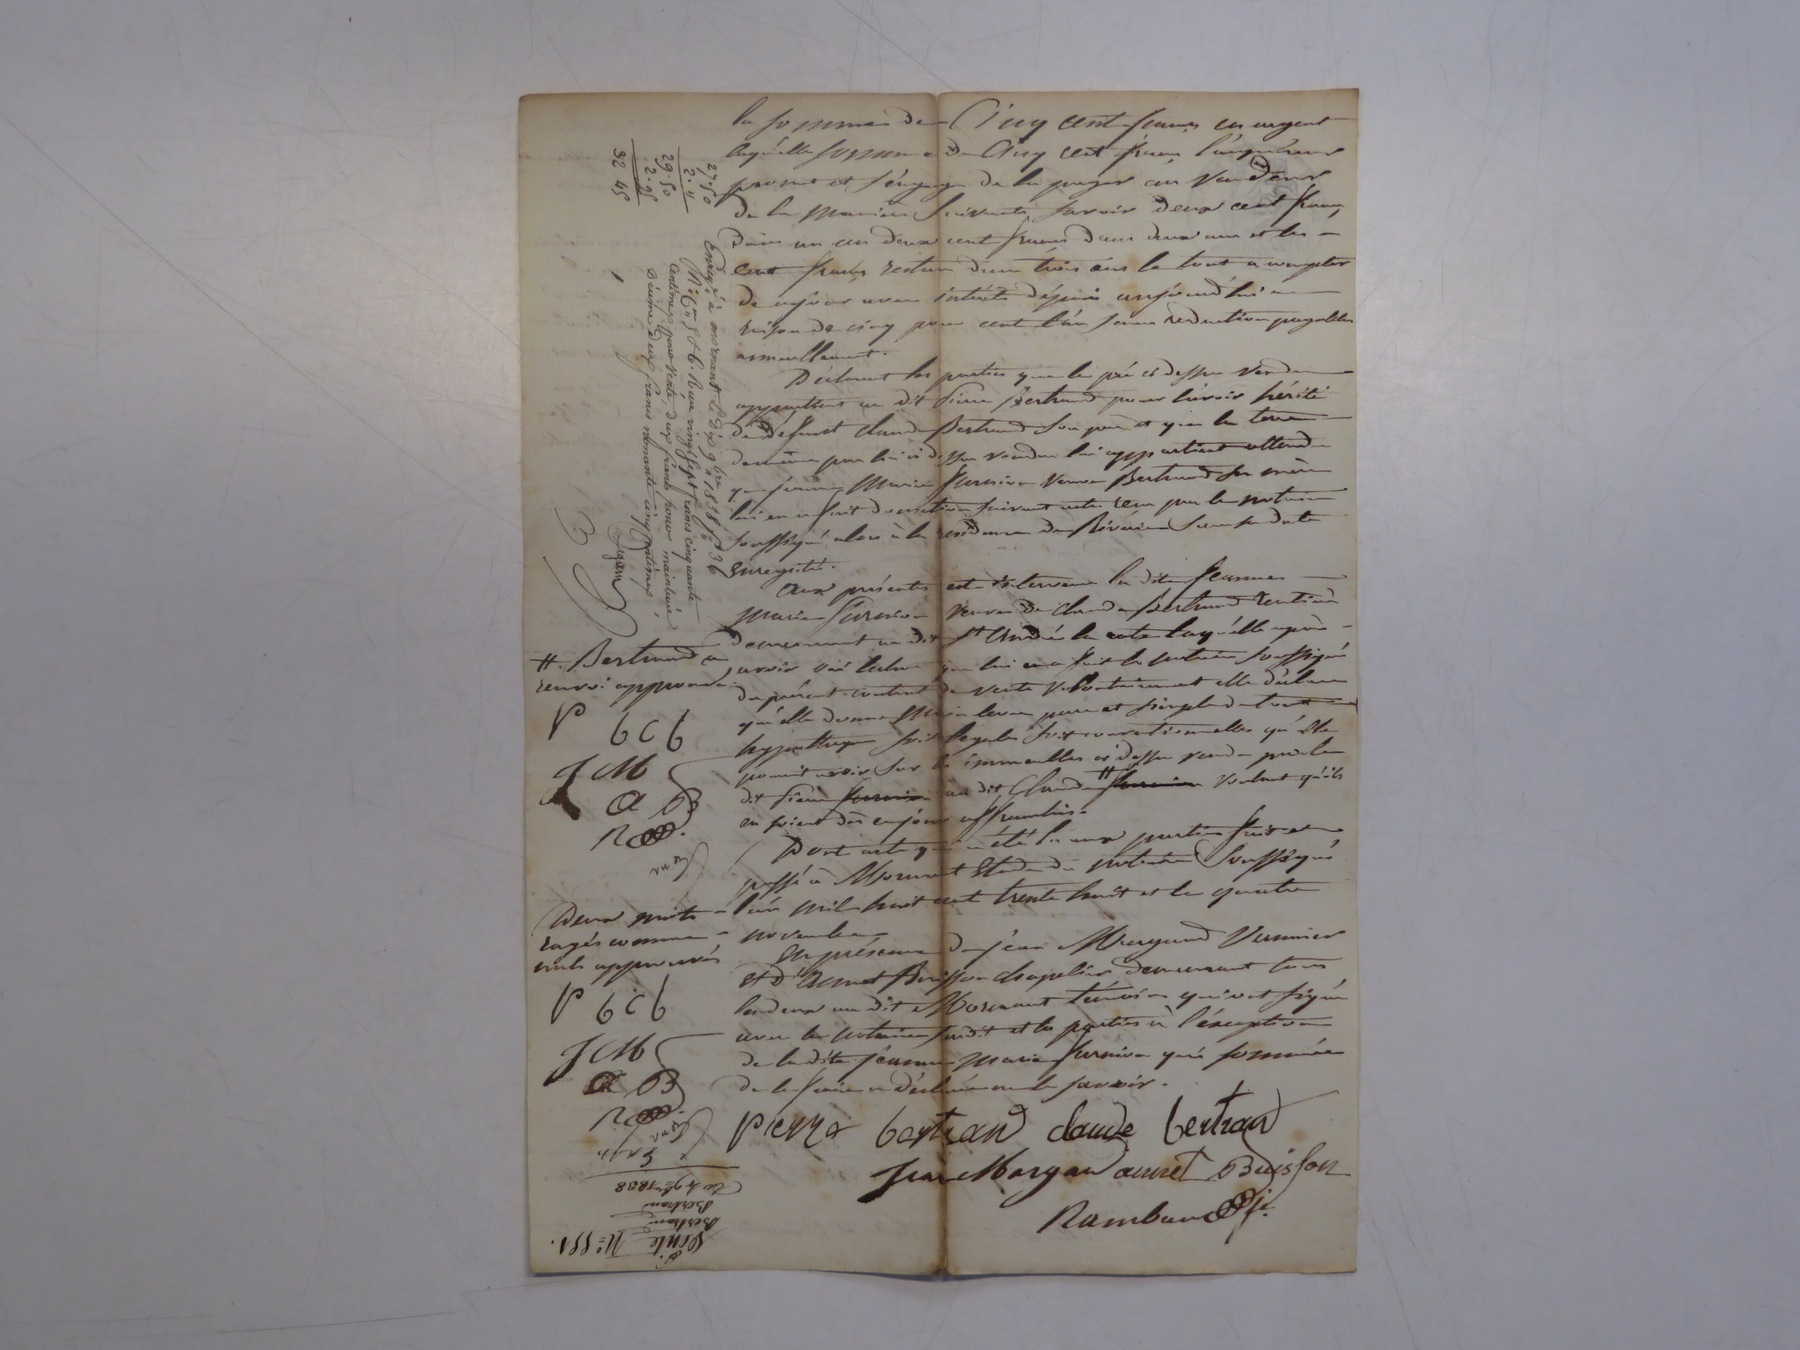 la somme de Cinq cent francs en argent
laquelle somme de Cinq cent francs l'acquéreur
promet et s'engage de la payer au vendeur
de la manière suivante savoir deux cent francs
dans un an deux cent francs dans deux ans et les
cent francs restant dans trois ans le tout a compter
de ce jour avec intérêts dépuis aujourd'hui a
raison de cinq pour cent l'an sans reduction payables
annuellement.
Déclarent les parties que le pré ci dessus vendu
appartient au dit Pierre Bertrand pour l'avoir hérité
de défunt Claude Bertrand son père et que la terre
de même par lui ci dessus vendue lui appartient attendu
que Jeanne Marie veuve Bertrand sa mère
lui en a fait donation suivant acte reçu par le notaire
soussigné alors à la résidence de Riverie sous sa date
enregistré.
Aux présentes est intervenue la dite Jeanne
Marie veuve de Claude Bertrand rentière
demeurant au dit St André la cote laquelle après
avoir oui lecture que lui en a fait le notaire soussigné
du présent contrat de vente volontairement elle déclare
qu'elle donne main levée pure et simple de toute
hypothèque soit légales soit conventionnelles qu'elle
pouvait avoir sur les immeubles ci dessus vendu par le
dit Pierre au dit Claude # voulant qu'ils
en soient dès ce jour affranchis.
Dont acte qui a été lu aux parties fait et
passé à Mornant Etude du notaire soussigné
l'an mil huit cent trente huit et le quatre
novembre
En présence de Jean Margand
et d'Aimé Buisson chapelier demeurant tous
les deux au dit Mornant témoins qui ont signé
avec le notaire susdit et les parties à l'exception
de la dite Jeanne Marie qui sommée
de le faire a déclaré ne le savoir.
pierre bertrand claude bertrand
Jean Margand Buisson
Rambaud
27.50
2.
29.50
2.95
32 45
Enregé à mornant Le dix 9bre 1838 fo 36
Ro Co 5 & 6. Reçu vingt sept francs cinquante
centimes pour vente deux francs pour mainlevée
Décime deux francs nonante cinq centimes
# Bertrand
renvoi approuvé
P b c b
J M
a B
R
Deux mots
rayés comme
nuls approuvés
P b c b
J M
a B
R
Vente No 551.
Bertrand
Bertrand
Du 4 9bre 1838